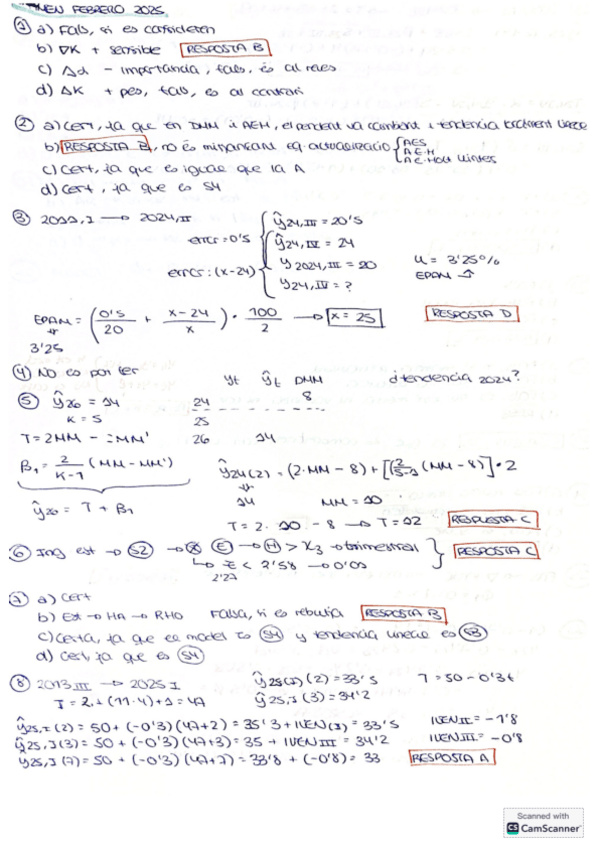 EXAMEN FEBRERO 2025
① a) Fals, si es consideren
b) ∇K + sensible RESPOSTA B
c) Δd - importància, fals, és al revés
d) ΔK + pes, fals, és al contrari
② a) Cert, ja que en DMM i AEH, el pendent va canviant i tendencia localment lineal
b) RESPOSTA B, no és mitjançant eq. actualització { AES
AEH
AE-Holt Winters
c) Cert, ja que és igual que la A
d) Cert, ja que es S4
③ 2011,I → 2024,II
error=0'5
error: (x-24)
ŷ24,III = 20'5
ŷ24,IV = 24
y2024,III = 20
y24,IV = ?
u = 3'25%
EPAM
EPAM = (0'5/20 + x-24/x) · 100/2 → x = 25 RESPOSTA D
3'25
④ No es pot fer
⑤ ŷ26 = 14
K = 5
yt ŷt DMM d tendencia 2024?
24 8
25
26 14
T = 2MM - MM'
β1 = 2/K-1 (MM - MM')
ŷ26 = T + β1
ŷ24(2) = (2·MM - 8) + [(2/5-1)(MM - 8)]·2
14 MM = 10
T = 2·10 - 8 → T = 12 RESPUESTA C
⑥ Ing est → S2 → → E → H > X3 → trimestral
↳ t < 2'58 → 0'05
2'27
RESPOSTA C
7 a) Cert
b) Est → HA → RHO Falsa, si es rebutja RESPOSTA B
c) Certa, ja que el model és S4 y tendencia lineal es S3
d) Cert, ja que es S4
⑧ 2013 III → 2025 I
T = 2 + (11·4) + 1 = 47
ŷ25(I) (2) = 33'5
ŷ25,I (3) = 34'2
T = 50 - 0'3t
ŷ25,I (2) = 50 + (-0'3)(47+2) = 35'3 + IVEN(3) = 33'5 IVEN II = -1'8
ŷ25,I (3) = 50 + (-0'3)(47+3) = 35 + IVEN III = 34'2 IVEN III = -0'8
y25,I (7) = 50 + (-0'3)(47+7) = 33'8 + (-0'8) = 33 RESPOSTA A
Scanned with
CS CamScanner